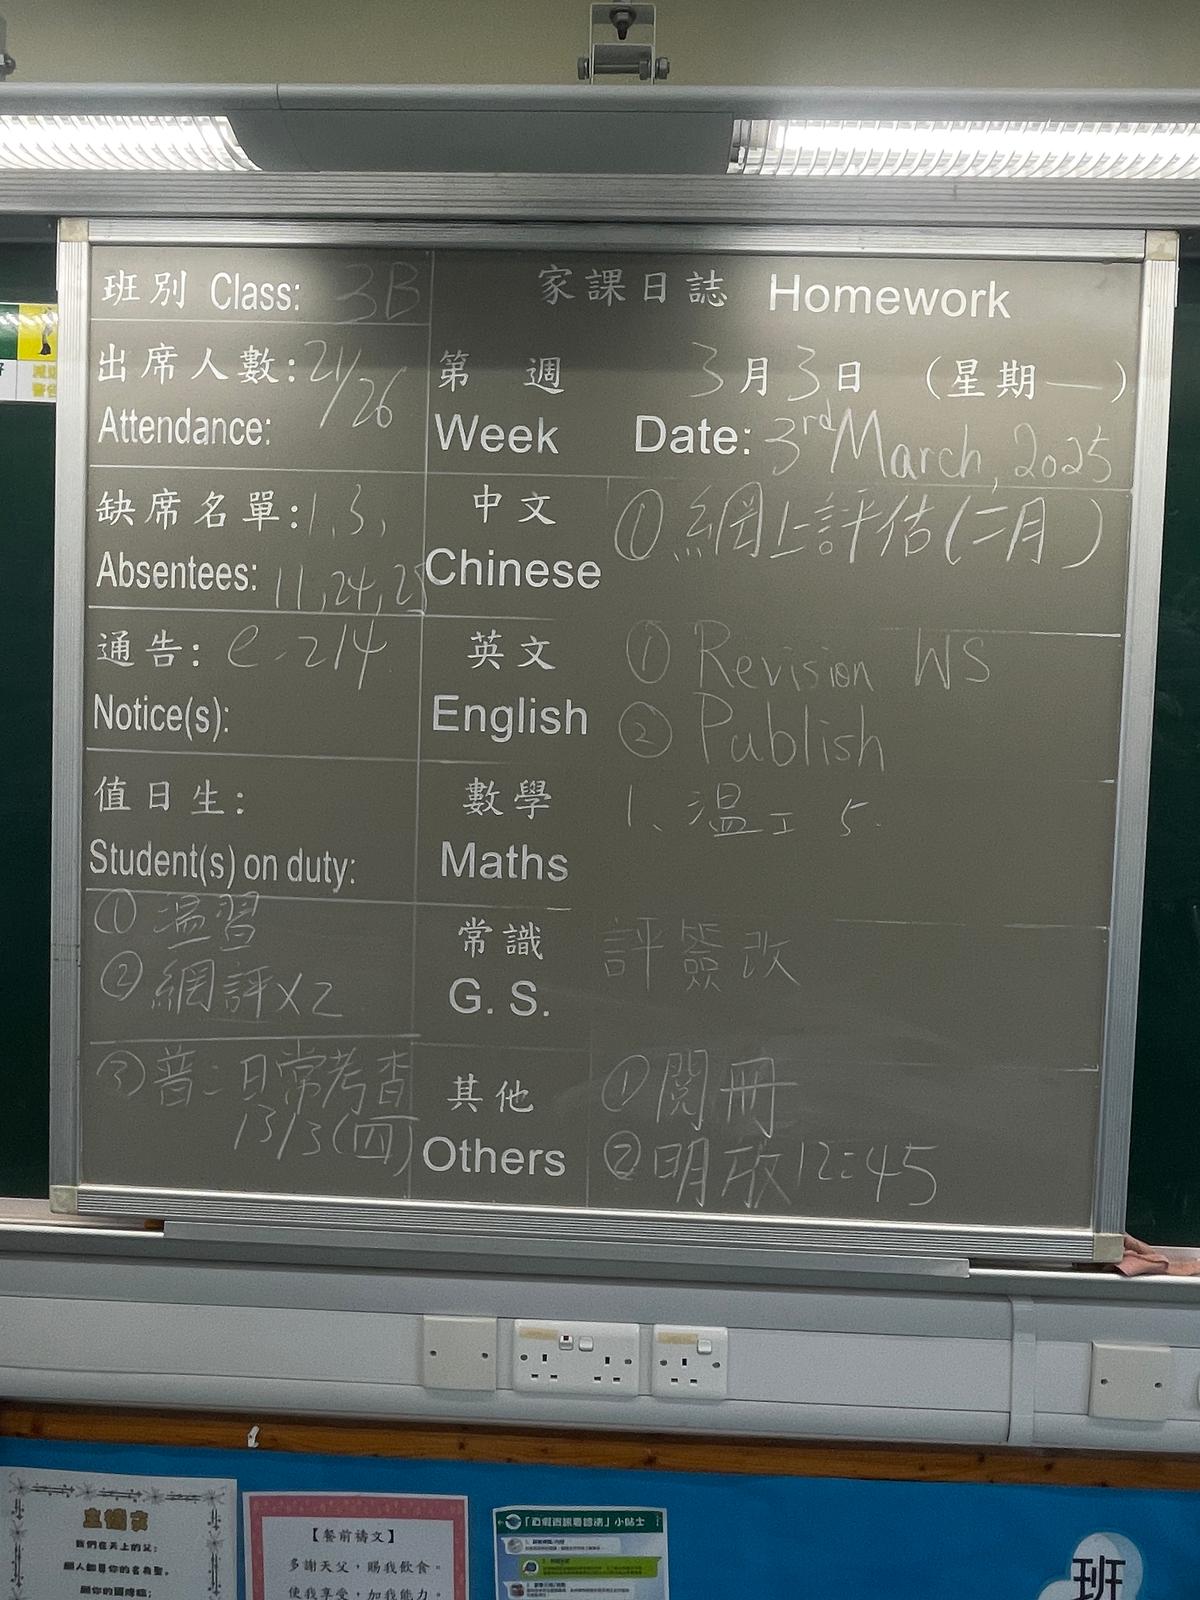 班別 Class: 3B
出席人數: 21/26
Attendance:
缺席名單: 1, 3,
Absentees: 11, 24, 25
通告: e-214
Notice(s):
值日生:
Student(s) on duty:
① 溫習
② 網評x2
③ 普: 日常考查
13/3(四)
家課日誌 Homework
第 週 3月3日 (星期一)
Week Date: 3rd March, 2025
中文 ① 網上評估(二月)
Chinese
英文 ① Revision WS
English ② Publish
數學 1、溫工5.
Maths
常識 評簽改
G. S.
其他 ① 閱冊
Others ② 明放12:45
主禱文
我們在天上的父:
願人都尊你的名為聖。
願你的國降臨;
【餐前禱文】
多謝天父,賜我飲食。
使我享受,加我能力。
小貼士
班